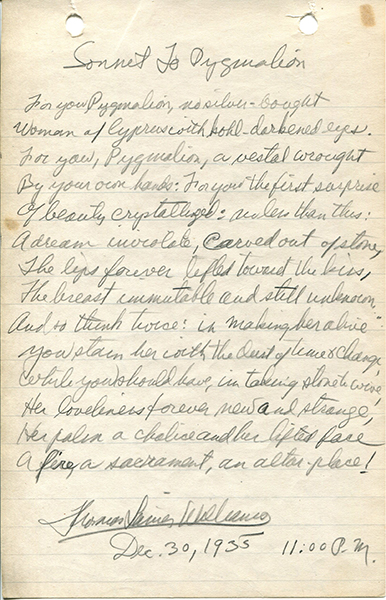 Sonnet To Pygmalion
For you Pygmalion, no silver-bought
Woman of Cyprus with kohl-darkened eyes.
For you, Pygmalion, a vestal wrought
By your own hands: For you the first surprise
Of beauty crystallized: unless than this:
A dream inviolate, carved out of stone,
The lips forever lifted toward the kiss,
The breast immutable and still unknown.
And so think twice: in making her alive
You stain her with the dust of time & change,
While you should have, in taking stone to wive,
Her loveliness forever new and strange,
Her palm a chalice and her lifted face
A fire, a sacrament, an altar-place!
Thomas Lanier Williams
Dec. 30, 1935 11:00 P.M.